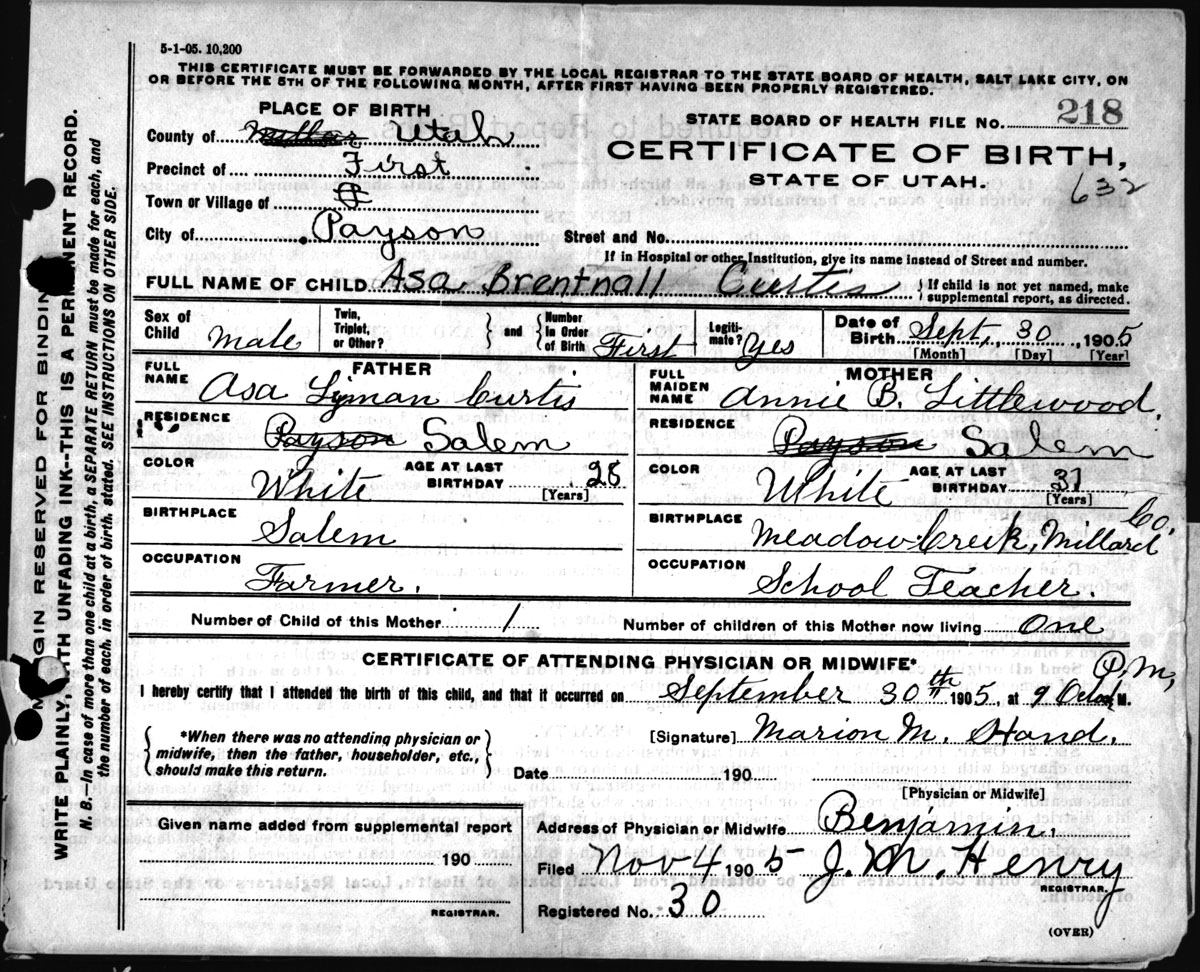 5-1-05. 10,200
THIS CERTIFICATE MUST BE FORWARDED BY THE LOCAL REGISTRAR TO THE STATE BOARD OF HEALTH, SALT LAKE CITY, ON
OR BEFORE THE 5TH OF THE FOLLOWING MONTH, AFTER FIRST HAVING BEEN PROPERLY REGISTERED.
PLACE OF BIRTH
County of Utah
Precinct of First
Town or Village of
City of Payson
STATE BOARD OF HEALTH FILE NO. 218
CERTIFICATE OF BIRTH,
STATE OF UTAH.
632
Street and No.
If in Hospital or other Institution, give its name instead of Street and number.
FULL NAME OF CHILD Asa Brentnall Curtis
If child is not yet named, make
supplemental report, as directed.
Sex of Child Male
Twin, Triplet, or Other?
and
Number In Order of Birth First
Legitimate? Yes
Date of Birth Sept, 30, 1905
[Month] [Day] [Year]
FATHER
FULL NAME Asa Lyman Curtis
RESIDENCE Payson Salem
COLOR White
AGE AT LAST BIRTHDAY 28
[Years]
BIRTHPLACE Salem
OCCUPATION Farmer.
MOTHER
FULL MAIDEN NAME Annie B. Littlewood.
RESIDENCE Payson Salem
COLOR White
AGE AT LAST BIRTHDAY 31
[Years]
BIRTHPLACE Meadow Creek, Millard Co.
OCCUPATION School Teacher.
Number of Child of this Mother 1
Number of children of this Mother now living One
CERTIFICATE OF ATTENDING PHYSICIAN OR MIDWIFE*
I hereby certify that I attended the birth of this child, and that it occurred on September 30th 1905, at 9 P.M.
*When there was no attending physician or
midwife, then the father, householder, etc.,
should make this return.
[Signature] Marion M. Hand.
Date 190
[Physician or Midwife]
Given name added from supplemental report
190
REGISTRAR.
Address of Physician or Midwife Benjamin,
Filed Nov 4 1905 J. M. Henry
REGISTRAR.
Registered No. 30
(OVER)
MARGIN RESERVED FOR BINDING
WRITE PLAINLY, WITH UNFADING INK--THIS IS A PERMANENT RECORD.
N. B.--In case of more than one child at a birth, a SEPARATE RETURN must be made for each, and
the number of each, in order of birth, stated. SEE INSTRUCTIONS ON OTHER SIDE.